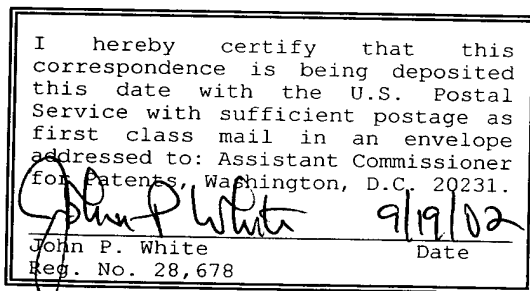 I hereby certify that this
correspondence is being deposited
this date with the U.S. Postal
Service with sufficient postage as
first class mail in an envelope
addressed to: Assistant Commissioner
for Patents, Washington, D.C. 20231.
John P White 9/19/02
John P. White Date
Reg. No. 28,678